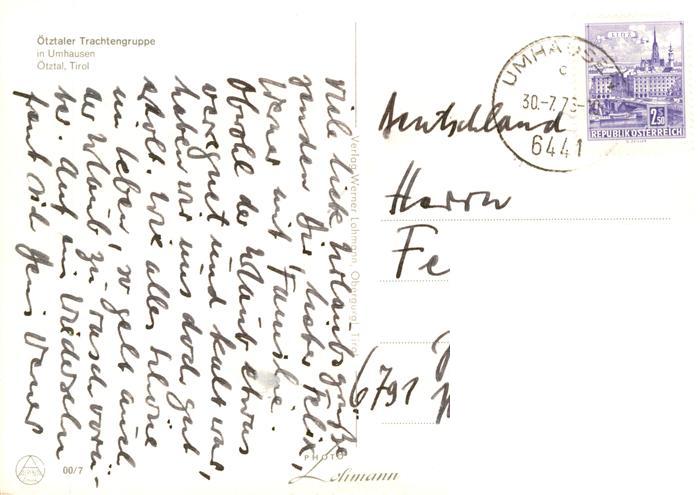 Ötztaler Trachtengruppe
in Umhausen
Ötztal, Tirol
Viele liebe Urlaubsgrüße
senden Dir lieber Felix,
Werner mit Familie.
Obwohl der Urlaub etwas
verregnet und kalt war,
haben wir uns doch gut
erholt. Wie alles Schöne
im Leben, so geht auch
der Urlaub zu rasch vorü-
ber. Auf ein Wiedersehn
freut sich Dein Werner
00/7
Verlag Werner Lohmann, Obergurgl, Tirol
PHOTO
Lohmann
UMHAUSEN
c
30.-7.73-
6441
LINZ
2.50
REPUBLIK ÖSTERREICH
Deutschland
Herrn
Fe
6791